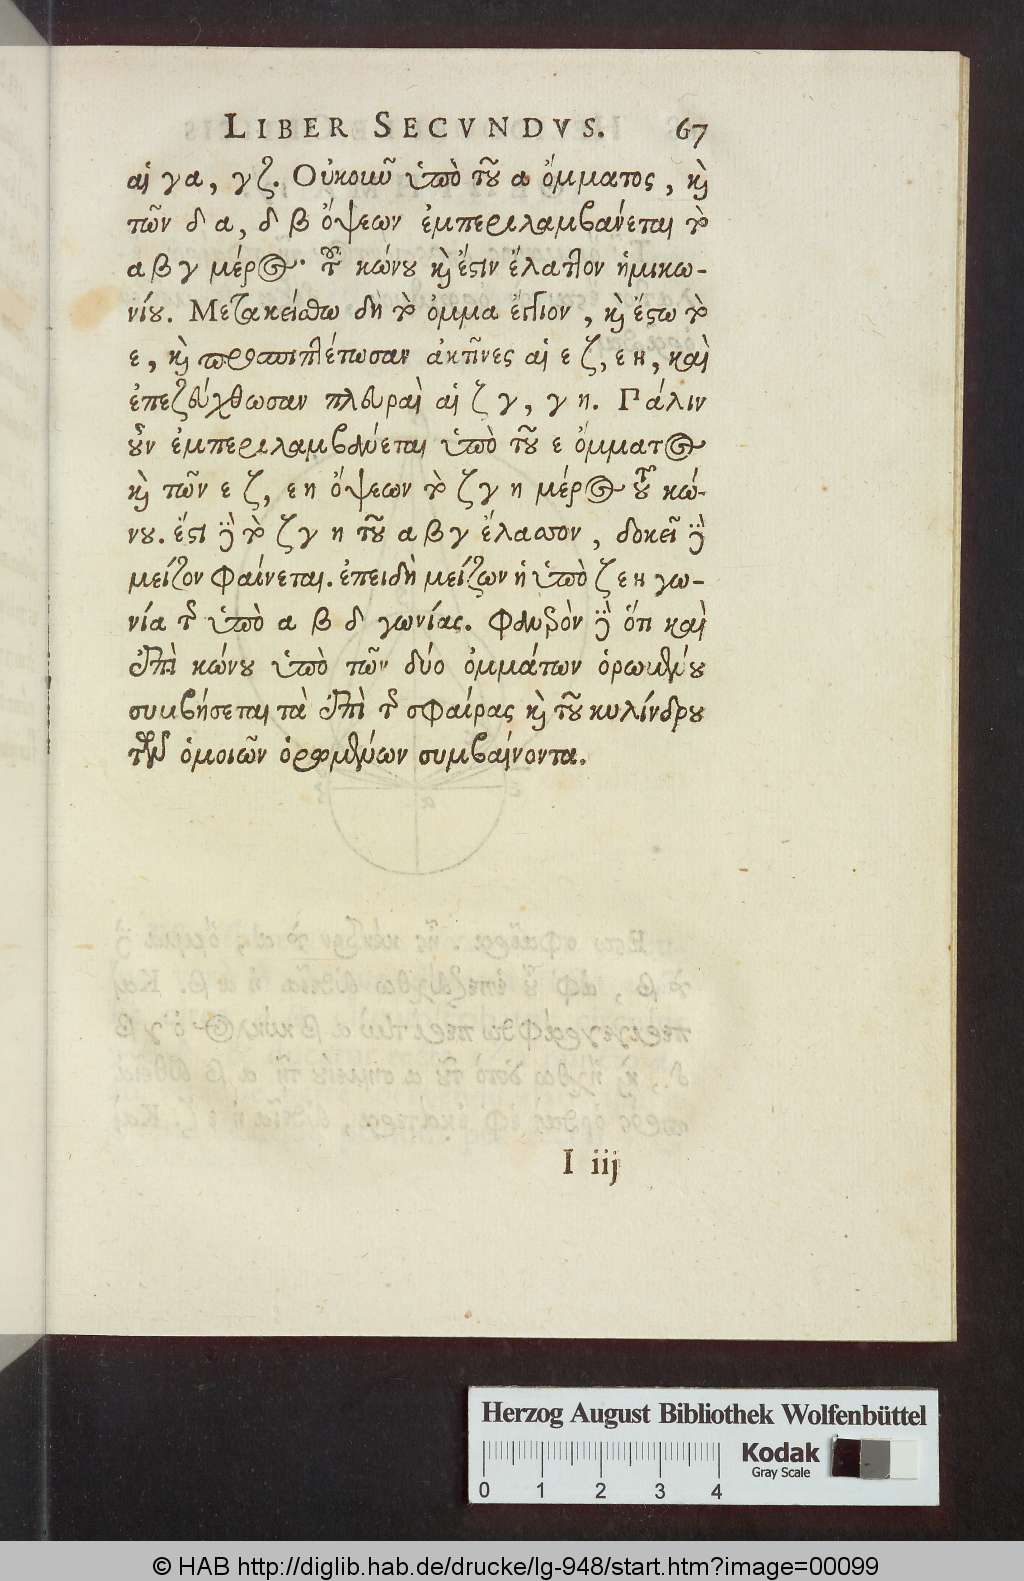 LIBER SECVNDVS. 67
αἱ γ α, γ ζ. Οὐκοιῦ ὑπὸ τȣ͂ α ὄμματος, καὶ
τῶν δ α, δ β ὄψεων ἐμπεριλαμβάνεται τὸ
α β γ μέρος τȣ͂ κώνȣ καὶ ἔστιν ἔλαττον ἡμικω-
νίȣ. Μετακείσθω δὴ τὸ ὄμμα ἔγγιον, καὶ ἔστω τὸ
ε, καὶ προσπιπτέτωσαν ἀκτῖνες αἱ ε ζ, ε η, καὶ
ἐπεζεύχθωσαν πλευραὶ αἱ ζ γ, γ η. Γάλιν
ȣ͂ν ἐμπεριλαμβάνεται ὑπὸ τȣ͂ ε ὄμματος
καὶ τῶν ε ζ, ε η ὄψεων τὸ ζ γ η μέρος τȣ͂ κώ-
νȣ. ἔστι δὲ τὸ ζ γ η τȣ͂ α β γ ἔλασσον, δοκεῖ δὲ
μείζον φαίνεται. ἐπειδὴ μείζων ἡ ὑπὸ ζ ε η γω-
νία τῆς ὑπὸ α β δ γωνίας. Φανερὸν δὲ ὅτι καὶ
ἐπὶ κώνȣ ὑπὸ τῶν δύο ὀμμάτων ὁρωμένȣ
συμβήσεται τὰ ἐπὶ τῆς σφαίρας καὶ τȣ͂ κυλίνδρȣ
τῶν ὁμοιῶν ὁρωμένων συμβαίνοντα.
I iij
Herzog August Bibliothek Wolfenbüttel
Kodak
Gray Scale
0 1 2 3 4
© HAB http://diglib.hab.de/drucke/lg-948/start.htm?image=00099